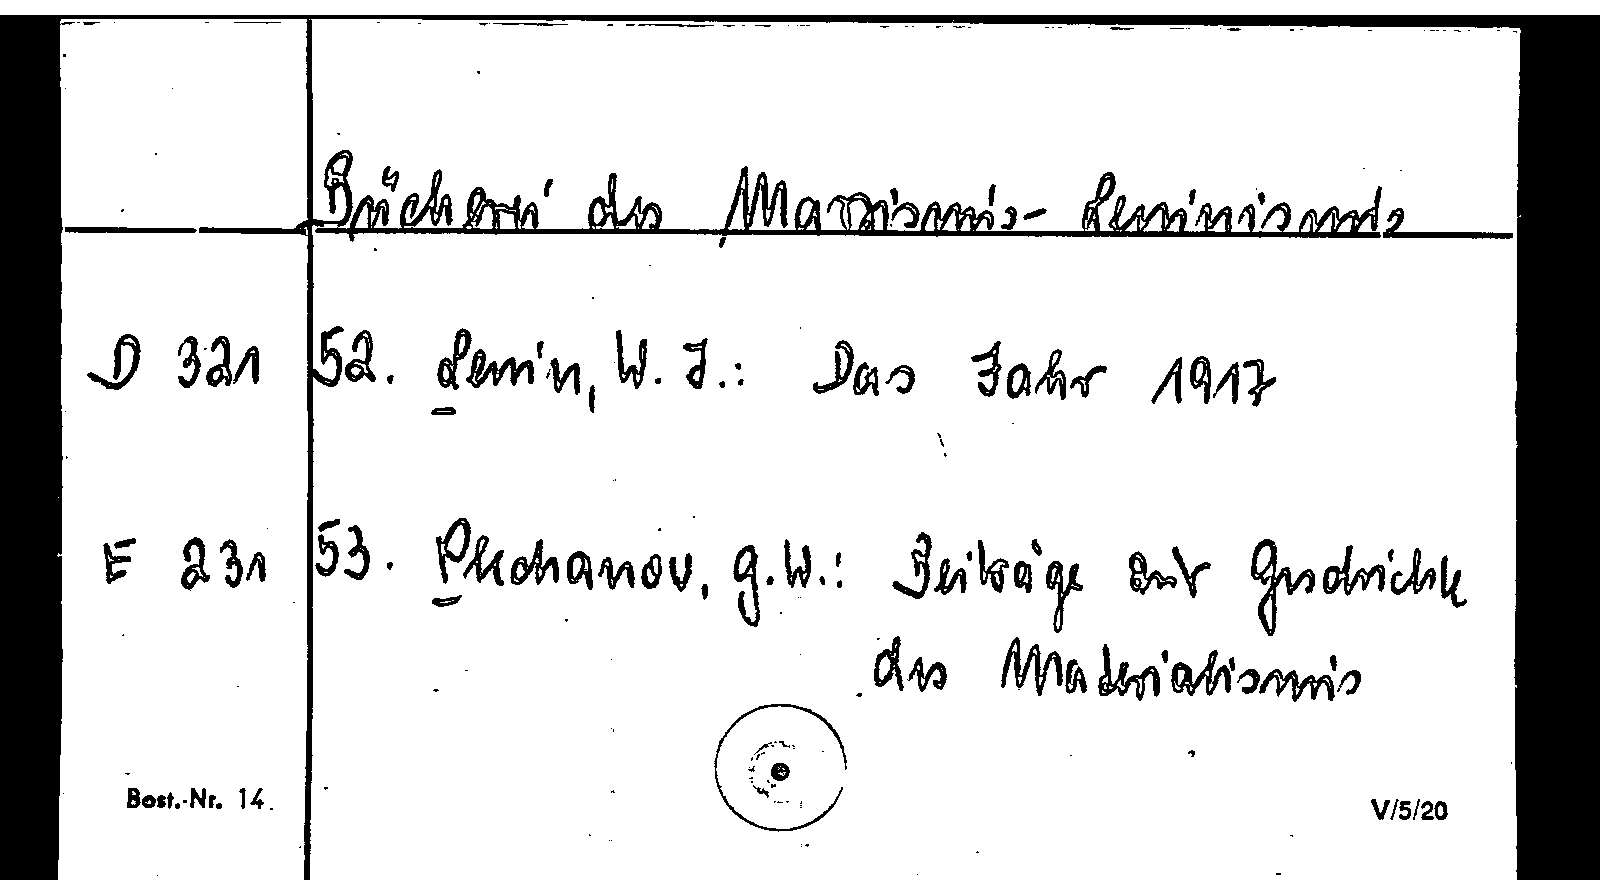 Bücherei des Marxismus-Leninismus
D 321 52. Lenin, W. I.: Das Jahr 1917
E 231 53. Plechanov, G. W.: Beiträge zur Geschichte
des Materialismus
Best.-Nr. 14 V/5/20